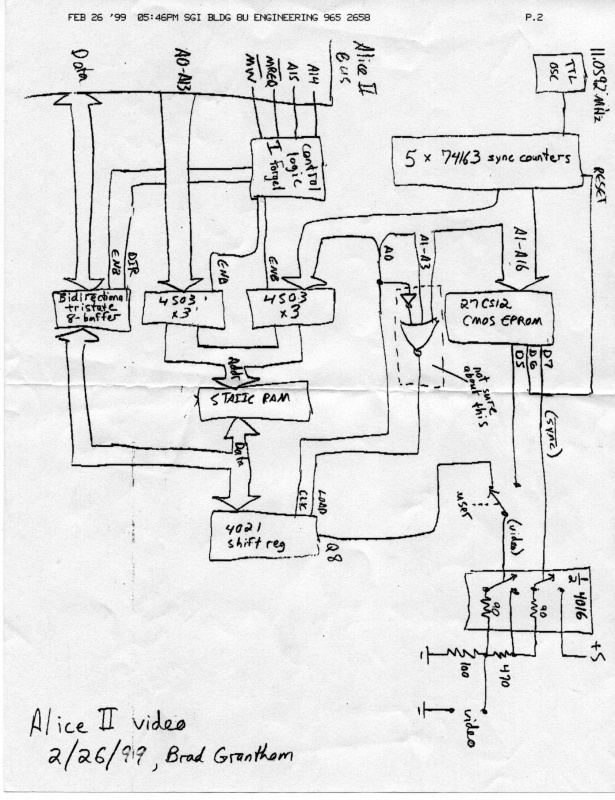 FEB 26 '99 05:46PM SGI BLDG 8U ENGINEERING 965 2658 P.2
11.0592 MHz
TTL
OSC
RESET
5 x 74163 sync counters
Alice II
Bus
A14
A15
MREQ
MW
A0-A13
Data
control
logic
I forget
DIR
ENB
ENB
ENB
A0
A1-A3
A1-A16
Bidirectional
tristate
8-buffer
4503
x3
4503
x3
27C512
CMOS EPROM
D7
D6
D5
not sure
about this
Addr
STATIC RAM
Data
(sync)
LOAD
CLK
4021
shift reg
Q8
user
(video)
1/2 4016
90
90
+5
470
100
video
Alice II video
2/26/99, Brad Grantham